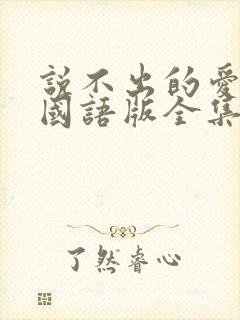 說不出的愛
國語版全集
了然睿心